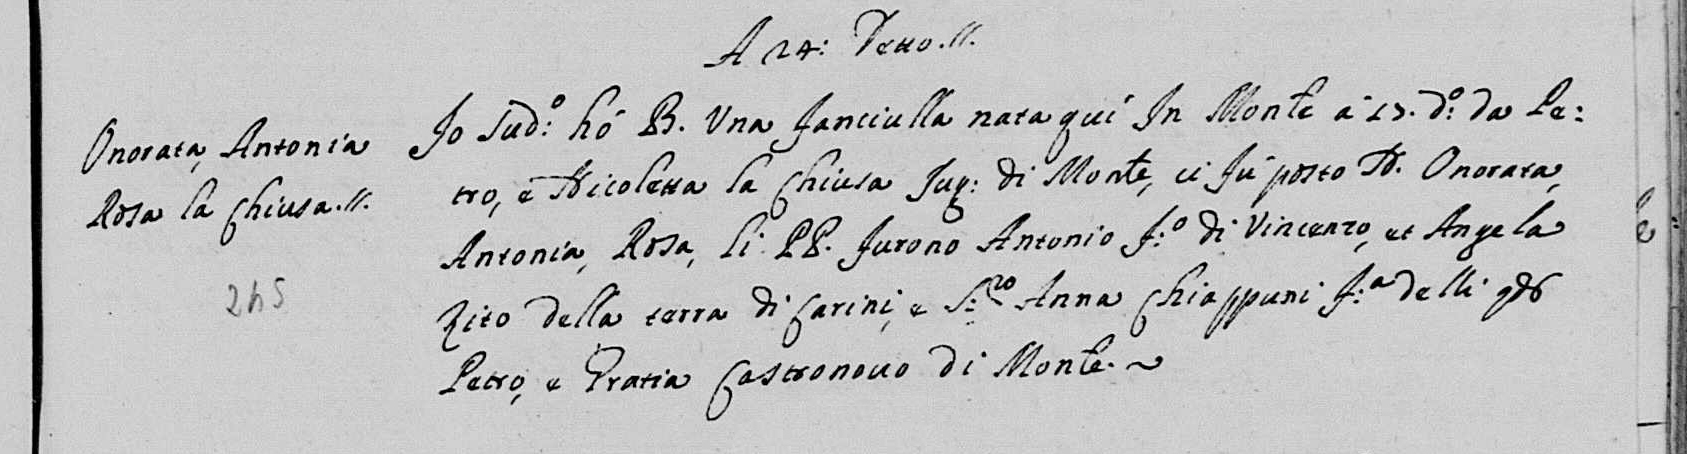 A 24: Detto.//.
Onorata, Antonia
Rosa la Chiusa.//.
245
Jo Sud:º hó B. Una fanciulla nata quí In Monte a 23. dº: da Pe=
tro, e Nicoletta la Chiusa Jug: di Monte, ci fú posto N. Onorata,
Antonia, Rosa, li PP. furono Antonio f:º di Vincenzo, et Angela
Zito della terra di Carini, e S:ro Anna Chiappuni f:a delli qdm
Petro, e Gratia Castronovo di Monte. ~